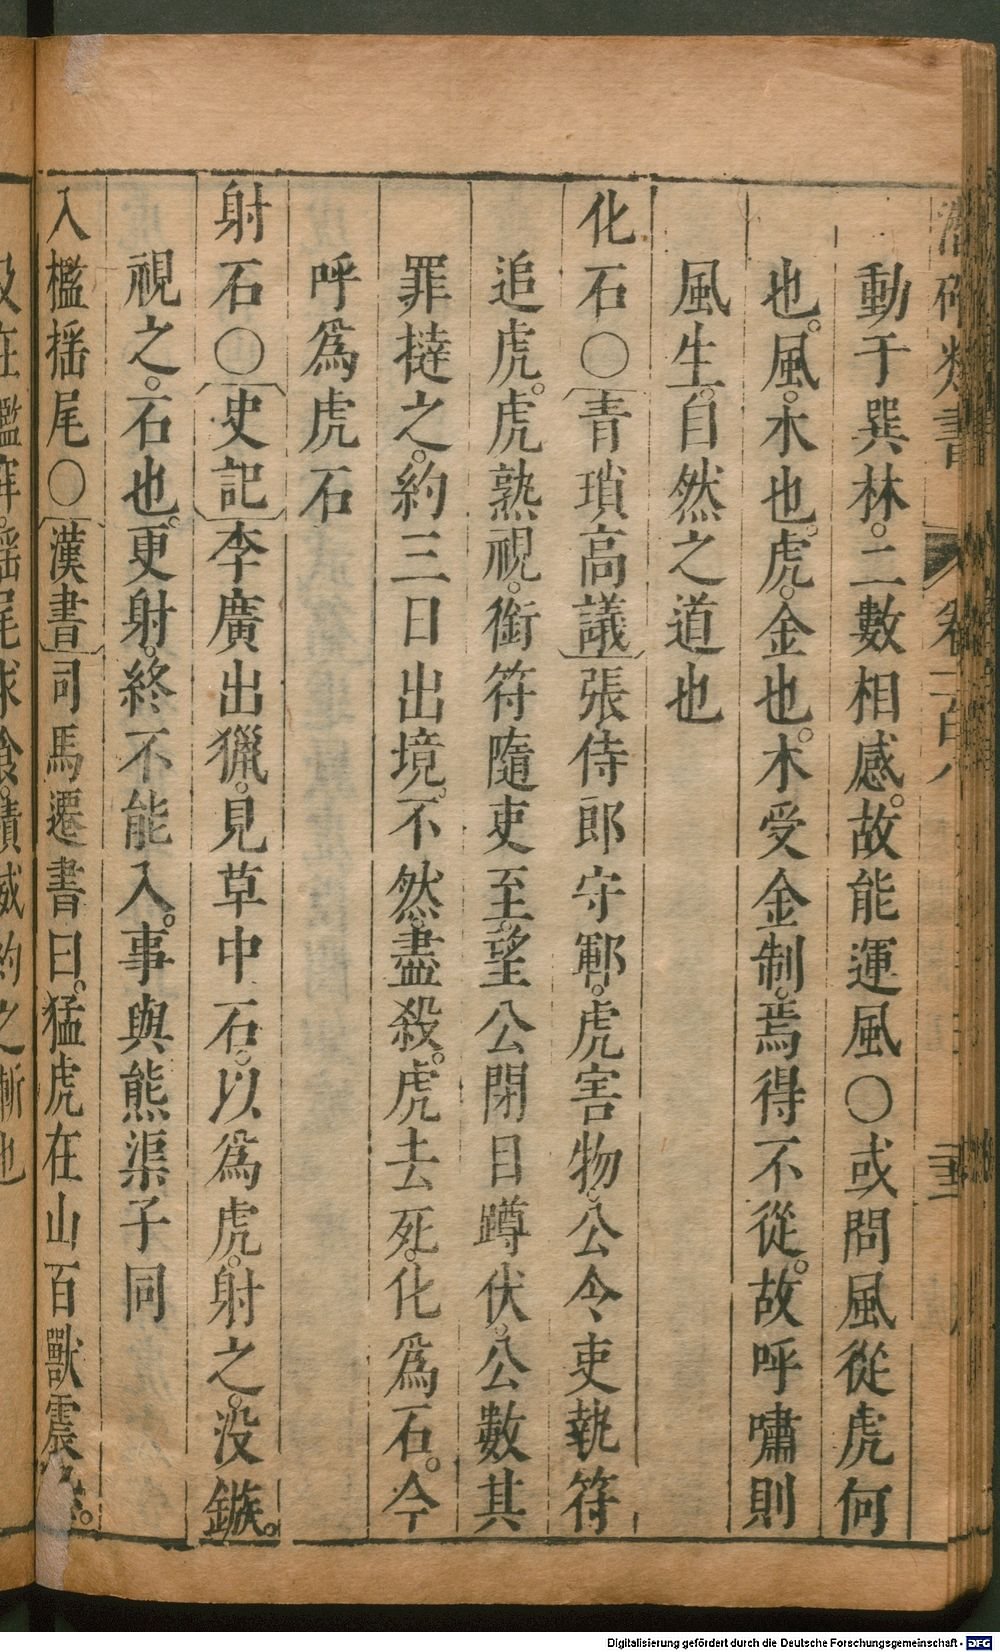 動于巽林。二數相感。故能運風〇或問風從虎何
也。風。木也。虎。金也。木受金制。焉得不從。故呼嘯則
風生。自然之道也
化石〇〔青瑣高議〕張侍郎守鄆。虎害物。公令吏執符
追虎。虎熟視。銜符隨吏至。望公閉目蹲伏。公數其
罪撻之。約三日出境。不然。盡殺。虎去死。化爲石。今
呼爲虎石
射石〇〔史記〕李廣出獵。見草中石。以爲虎。射之。没鏃。
視之。石也。更射。終不能入。事與熊渠子同
入檻揺尾〇〔漢書〕司馬遷書曰。猛虎在山百獸震
及在檻穽。揺尾求食。積威約之漸也
Digitalisierung gefördert durch die Deutsche Forschungsgemeinschaft - DFG